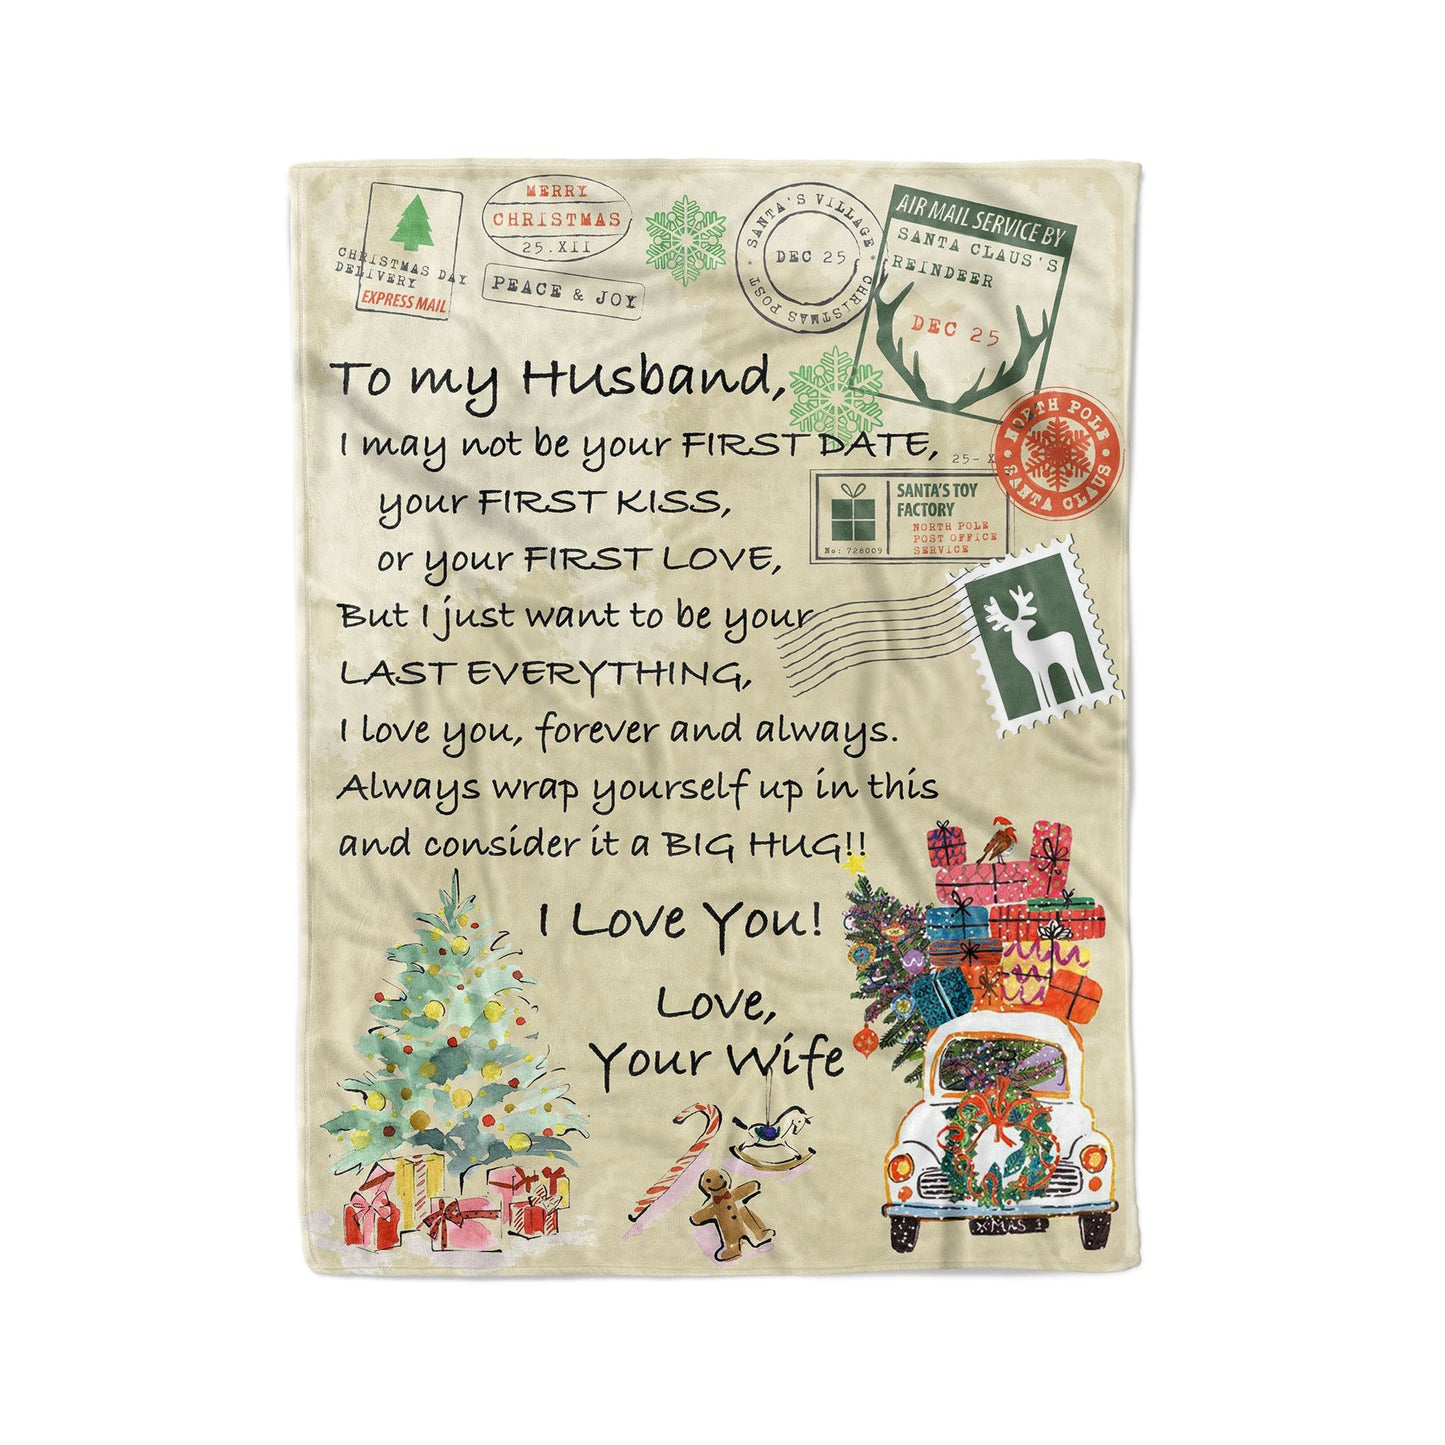 MERRY
CHRISTMAS
25.XII
CHRISTMAS DAY
DELIVERY
EXPRESS MAIL
PEACE & JOY
· SANTA'S VILLAGE ·
CHRISTMAS POST
DEC 25
AIR MAIL SERVICE BY
SANTA CLAUS'S
REINDEER
DEC 25
To my Husband,
I may not be your FIRST DATE,
your FIRST KISS,
or your FIRST LOVE,
But I just want to be your
LAST EVERYTHING,
I love you, forever and always.
Always wrap yourself up in this
and consider it a BIG HUG!!
I Love You!
Love,
Your Wife
25- X
· NORTH POLE ·
SANTA CLAUS
SANTA'S TOY
FACTORY
NORTH POLE
POST OFFICE
SERVICE
No: 728009
XMAS 1